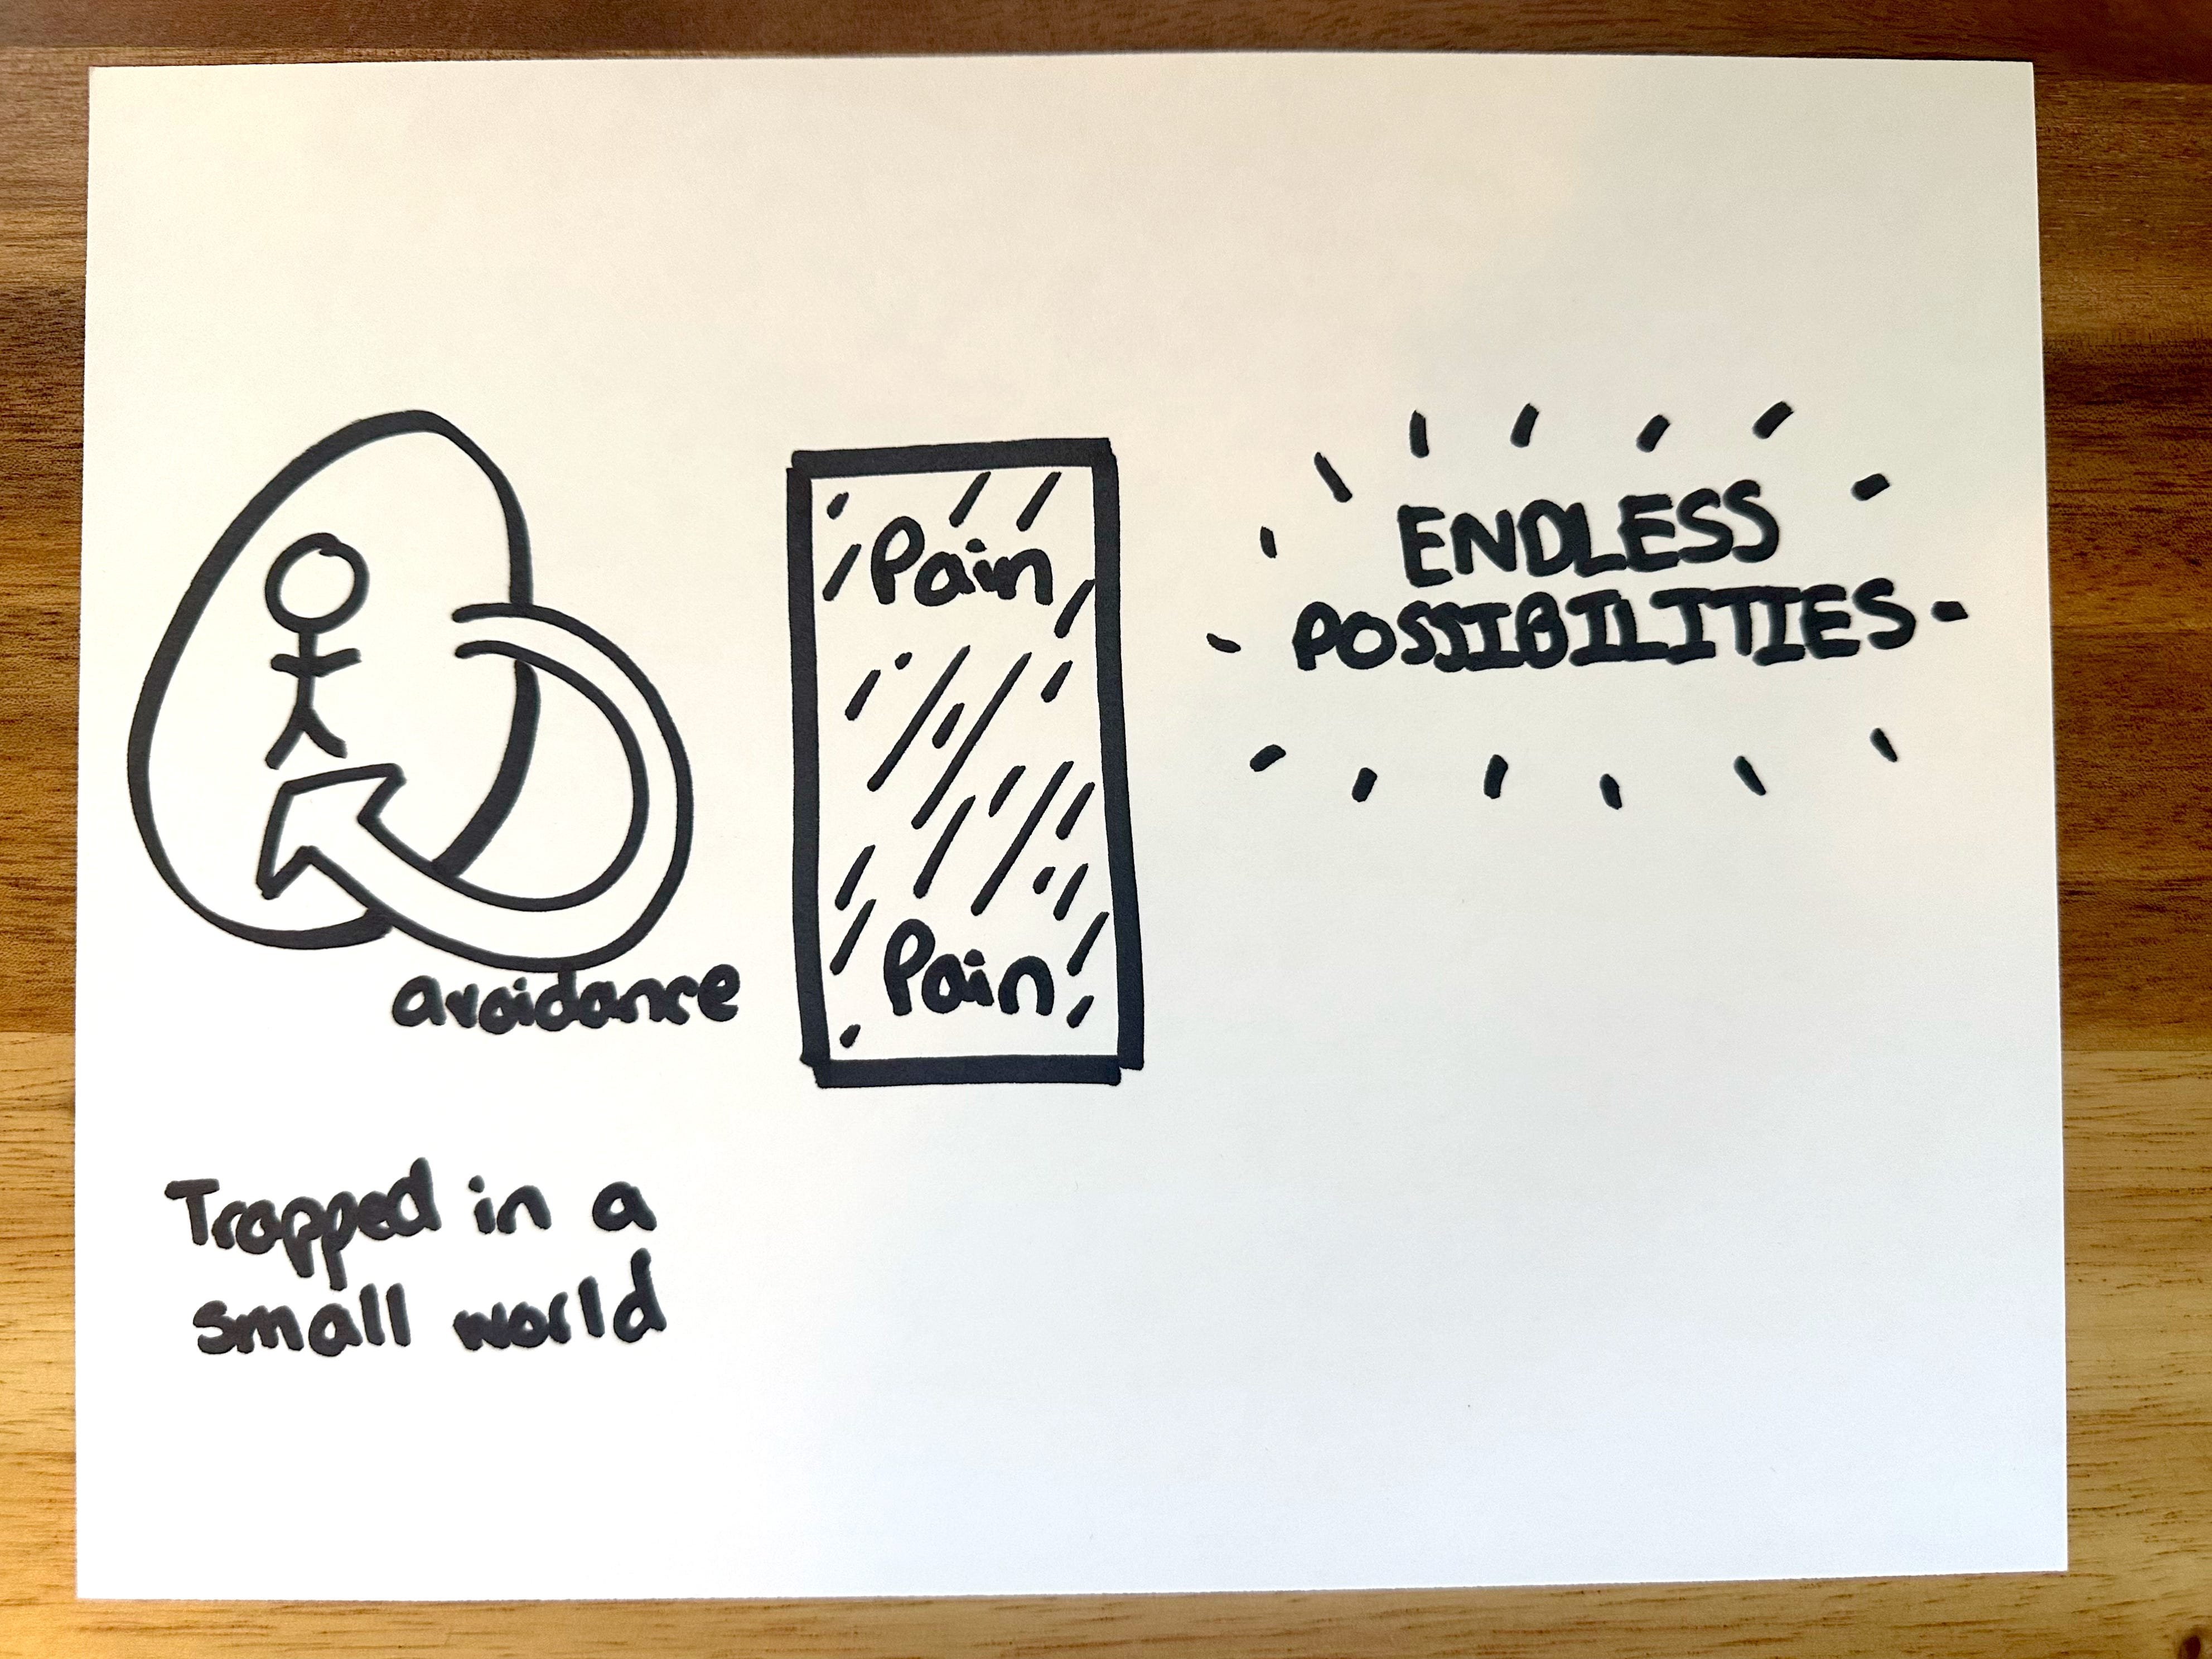 avoidance
Trapped in a
small world
Pain
Pain
ENDLESS
POSSIBILITIES